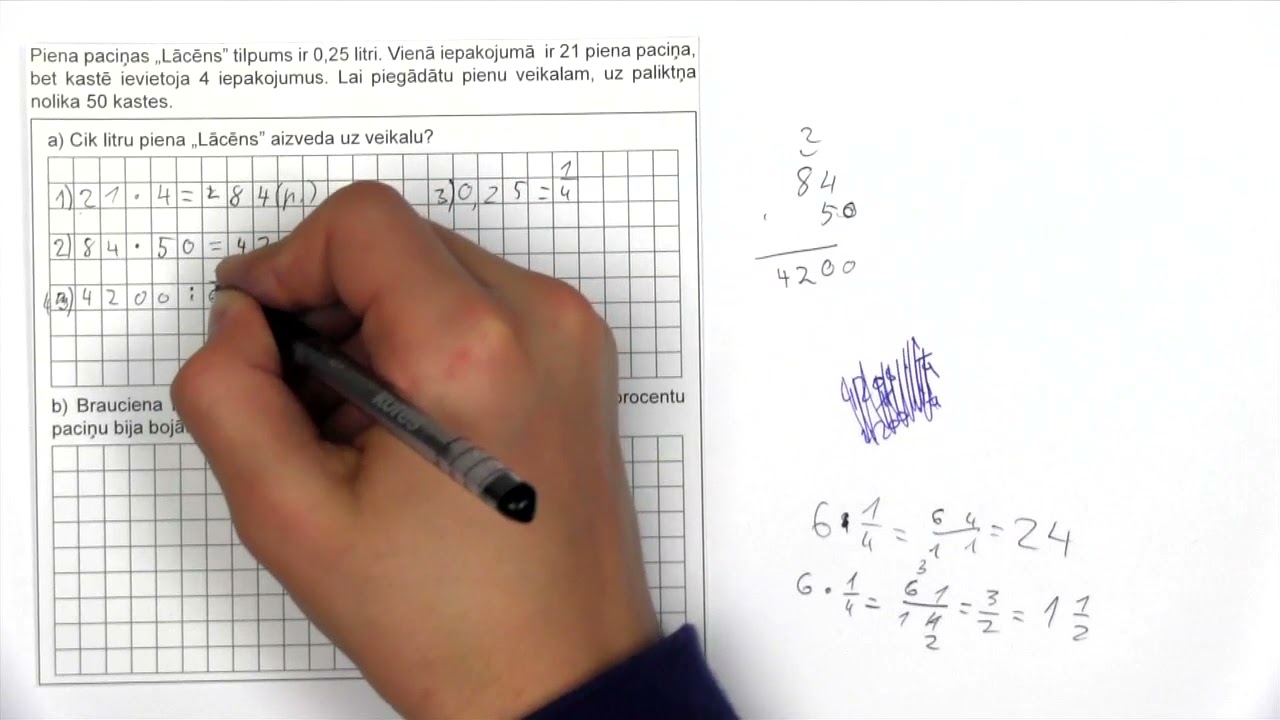 Piena paciņas „Lācēns” tilpums ir 0,25 litri. Vienā iepakojumā ir 21 piena paciņa,
bet kastē ievietoja 4 iepakojumus. Lai piegādātu pienu veikalam, uz paliktņa
nolika 50 kastes.
a) Cik litru piena „Lācēns” aizveda uz veikalu?
1) 21 · 4 = 84 (p.)
3) 0,25 = 1/4
2) 84 · 50 = 42
4200 :
b) Brauciena
procentu
paciņu bija bojā
2
84
· 50
4200
6 : 1/4 = 6 4 / 1 1 = 24
3
6 · 1/4 = 6 1 / 1 4 = 3/2 = 1 1/2
2